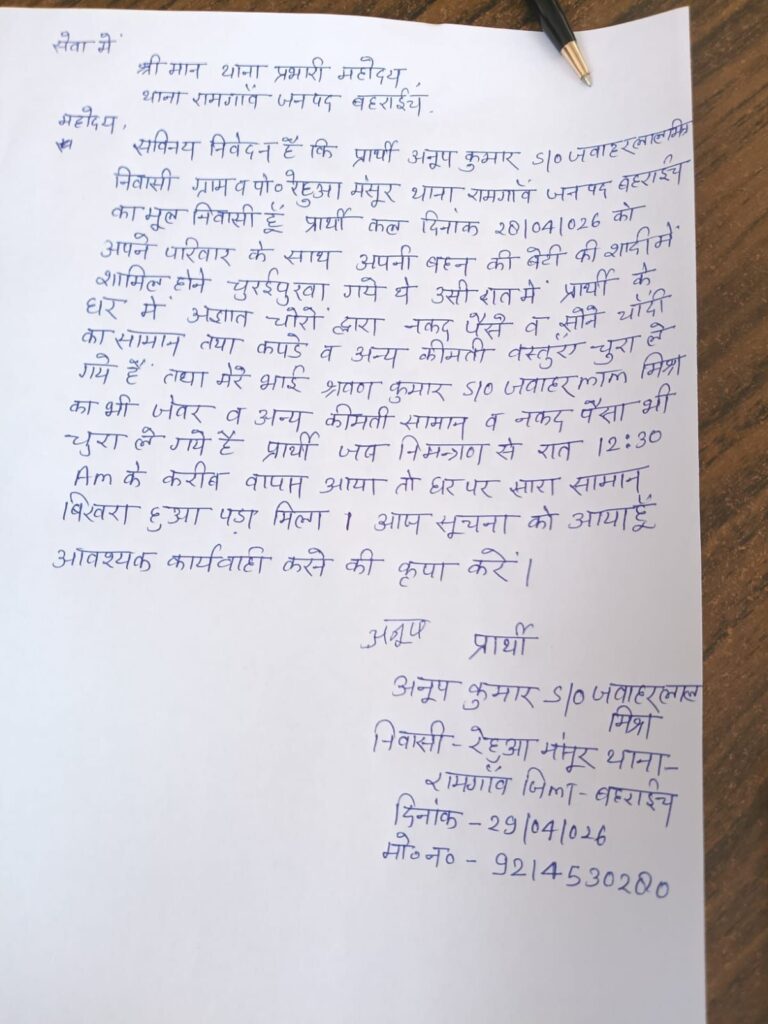 सेवा में
श्री मान थाना प्रभारी महोदय,
थाना रामगाँव जनपद बहराईच.
महोदय,
सविनय निवेदन है कि प्रार्थी अनूप कुमार S/O जवाहरलाल मिश्र
निवासी ग्राम व पो० रेहुआ मंसूर थाना रामगाँव जनपद बहराईच
का मूल निवासी हूँ प्रार्थी कल दिनांक 28/04/026 को
अपने परिवार के साथ अपनी बहन की बेटी की शादी में
शामिल होने चुरईपुरवा गये थे उसी रात में प्रार्थी के
घर में अज्ञात चोरों द्वारा नकद पैसे व सोने चाँदी
का सामान तथा कपडे व अन्य कीमती वस्तुएँ चुरा ले
गये हैं तथा मेरे भाई श्रवण कुमार S/O जवाहरलाल मिश्र
का भी जेवर व अन्य कीमती सामान व नकद पैसा भी
चुरा ले गये है प्रार्थी जब निमन्त्रण से रात 12:30
Am के करीब वापस आया तो घर पर सारा सामान
बिखरा हुआ पड़ा मिला । आज सूचना को आया हूँ
आवश्यक कार्यवाही करने की कृपा करें ।
अनूप प्रार्थी
अनूप कुमार S/O जवाहरलाल
मिश्र
निवासी - रेहुआ मंसूर थाना -
रामगाँव जिला - बहराईच
दिनांक - 29/04/026
मो० न० - 9214530280